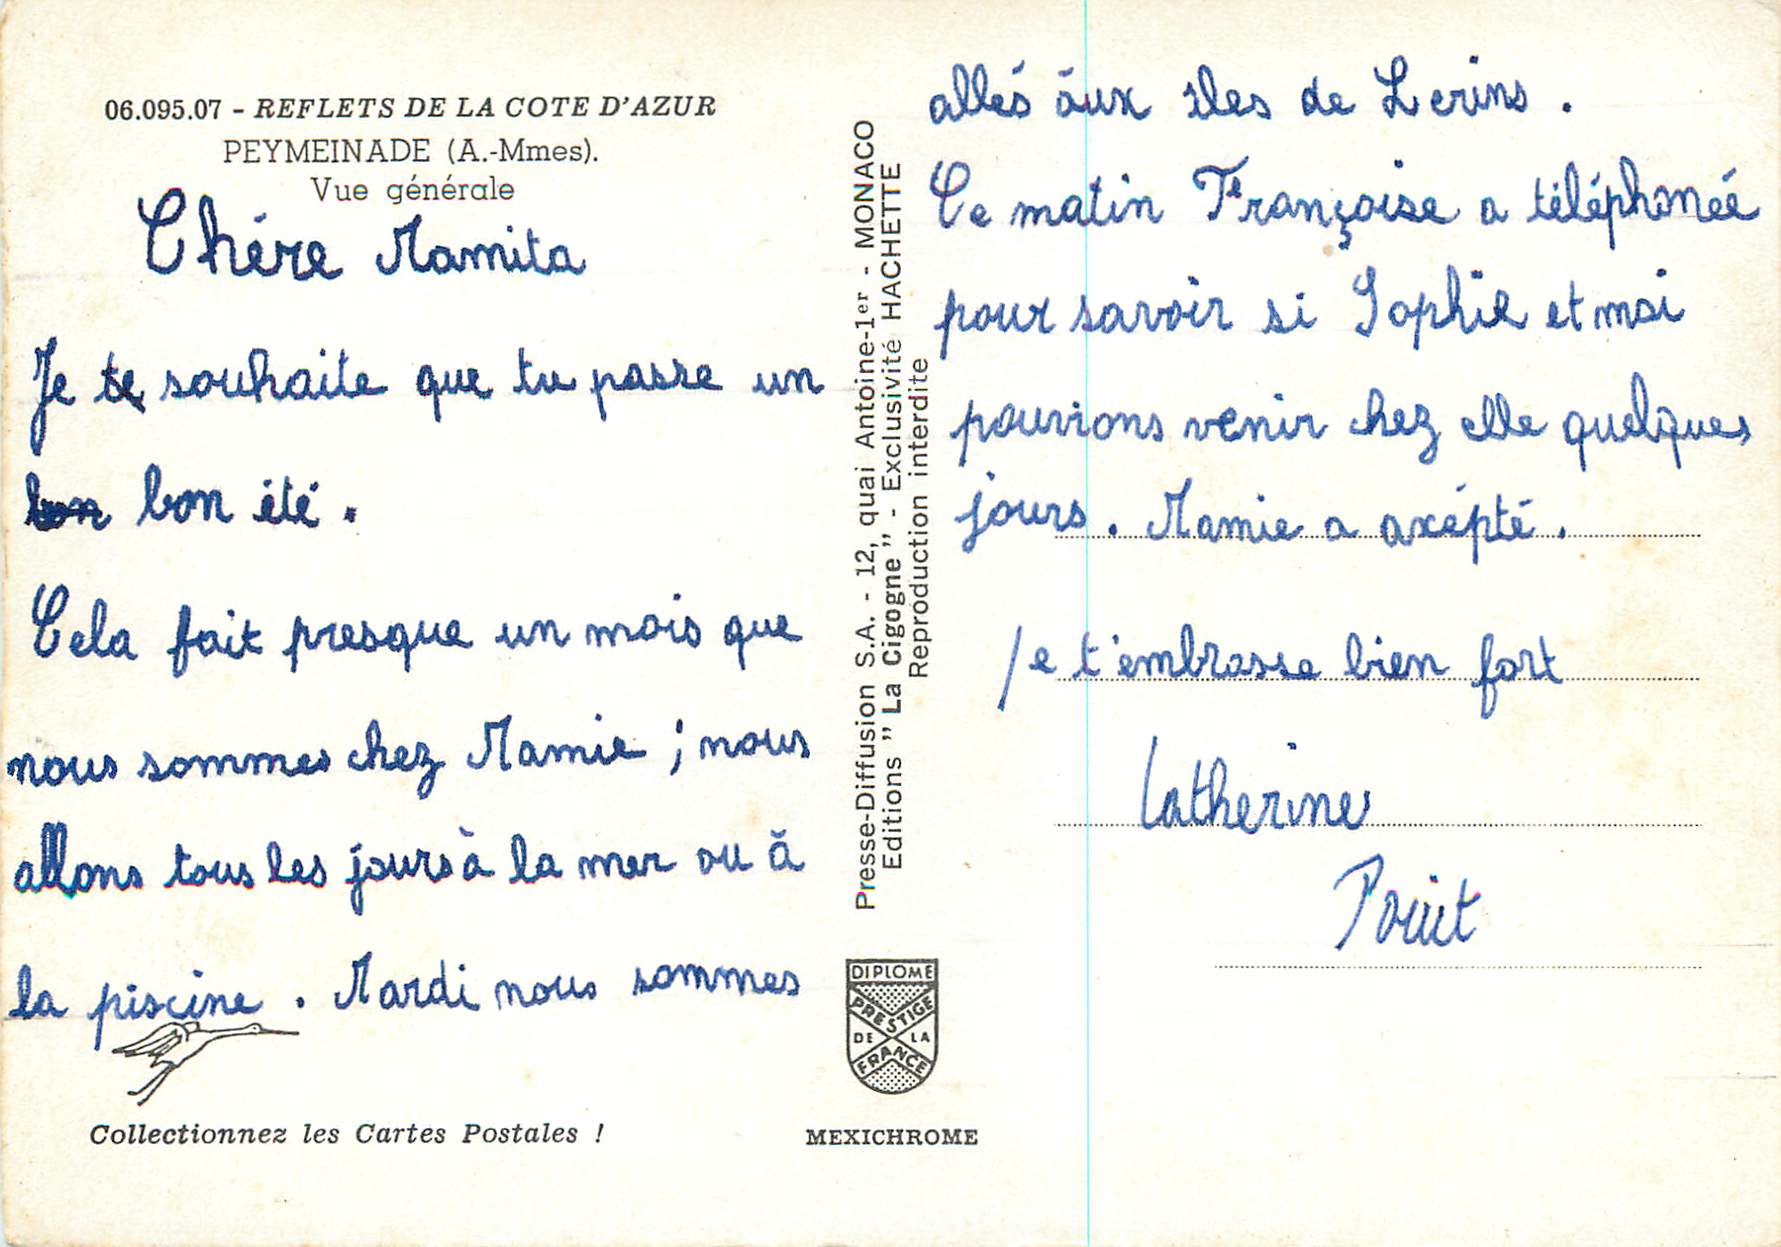 06.095.07 - REFLETS DE LA COTE D'AZUR
PEYMEINADE (A.-Mmes).
Vue générale
Chére Mamita
Je te souhaite que tu passe un
bon bon été.
Cela fait presque un mois que
nous sommes chez Mamie ; nous
allons tous les jours à la mer ou à
la piscine. Mardi nous sommes
Collectionnez les Cartes Postales !
Presse-Diffusion S.A. - 12, quai Antoine-1er - MONACO
Editions "La Cigogne" - Exclusivité HACHETTE
Reproduction interdite
DIPLOME
PRESTIGE
DE LA
FRANCE
MEXICHROME
allés aux îles de Lerins.
Ce matin Françoise a téléphonéé
pour savoir si Sophie et moi
pouvions venir chez elle quelques
jours. Mamie a axépté.
Je t'embrasse bien fort
Catherine